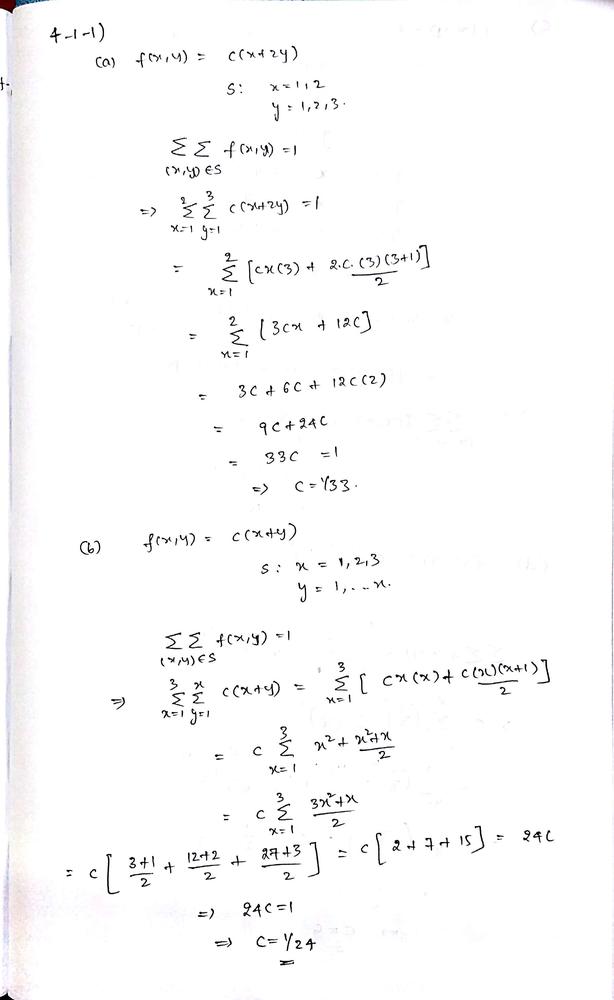 4-1-1)
(a) f(x,y) = c(x+2y)
S: x=1,2
y=1,2,3.
ΣΣ f(x,y) =1
(x,y)∈S
=> Σ_{x=1}^{2} Σ_{y=1}^{3} c(x+2y) =1
= Σ_{x=1}^{2} [cx(3) + 2.c.(3)(3+1)/2]
= Σ_{x=1}^{2} [3cx + 12c]
= 3c + 6c + 12c(2)
= 9c+24c
= 33c =1
=> c = 1/33.
(b) f(x,y) = c(x+y)
S: x = 1,2,3
y = 1,...x.
ΣΣ f(x,y) =1
(x,y)∈S
=> Σ_{x=1}^{3} Σ_{y=1}^{x} c(x+y) = Σ_{x=1}^{3} [cx(x)+ c(x)(x+1)/2]
= c Σ_{x=1}^{3} x²+ x²+x/2
= c Σ_{x=1}^{3} 3x²+x/2
= c[3+1/2 + 12+2/2 + 27+3/2] = c[2+7+15] = 24c
=> 24c=1
=> c= 1/24